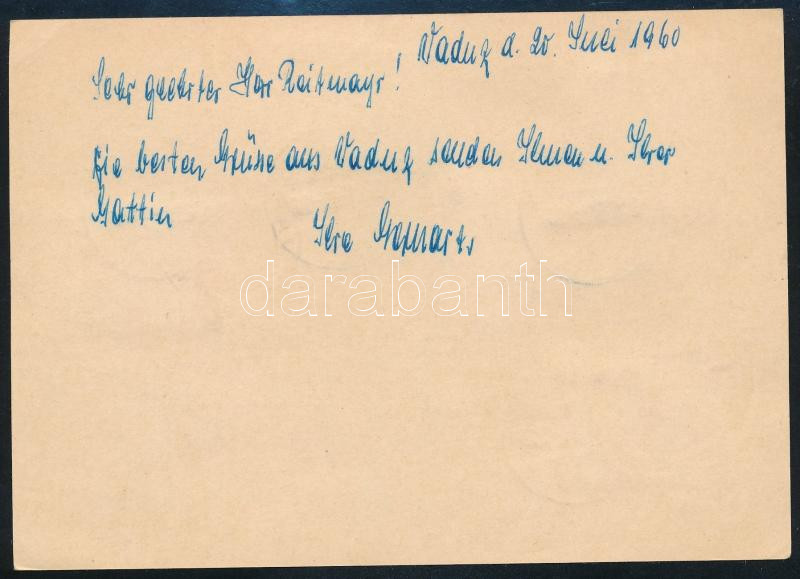 Vaduz d. 20. Juni 1960
Sehr geehrter Herr Reitmayr!
Die besten Grüsse aus Vaduz senden Ihnen u. Ihrer
Gattin
Ihre
darabanth